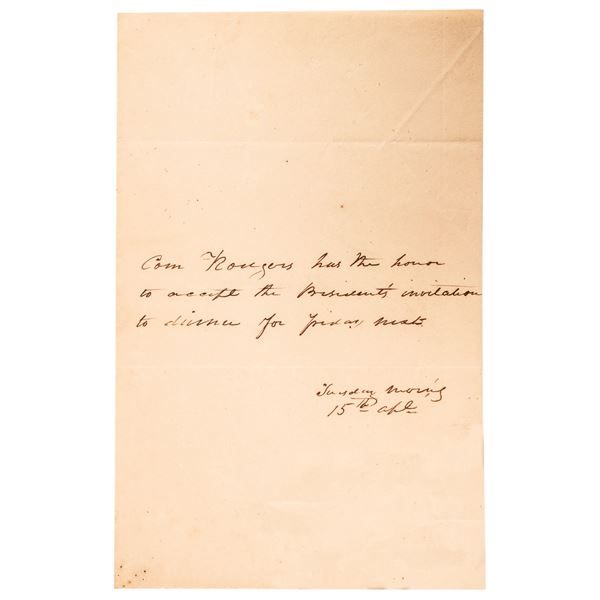 Com Rodgers has the honor
to accept the President's invitation
to dinner for friday next
Tuesday Morn'g
15th Apl